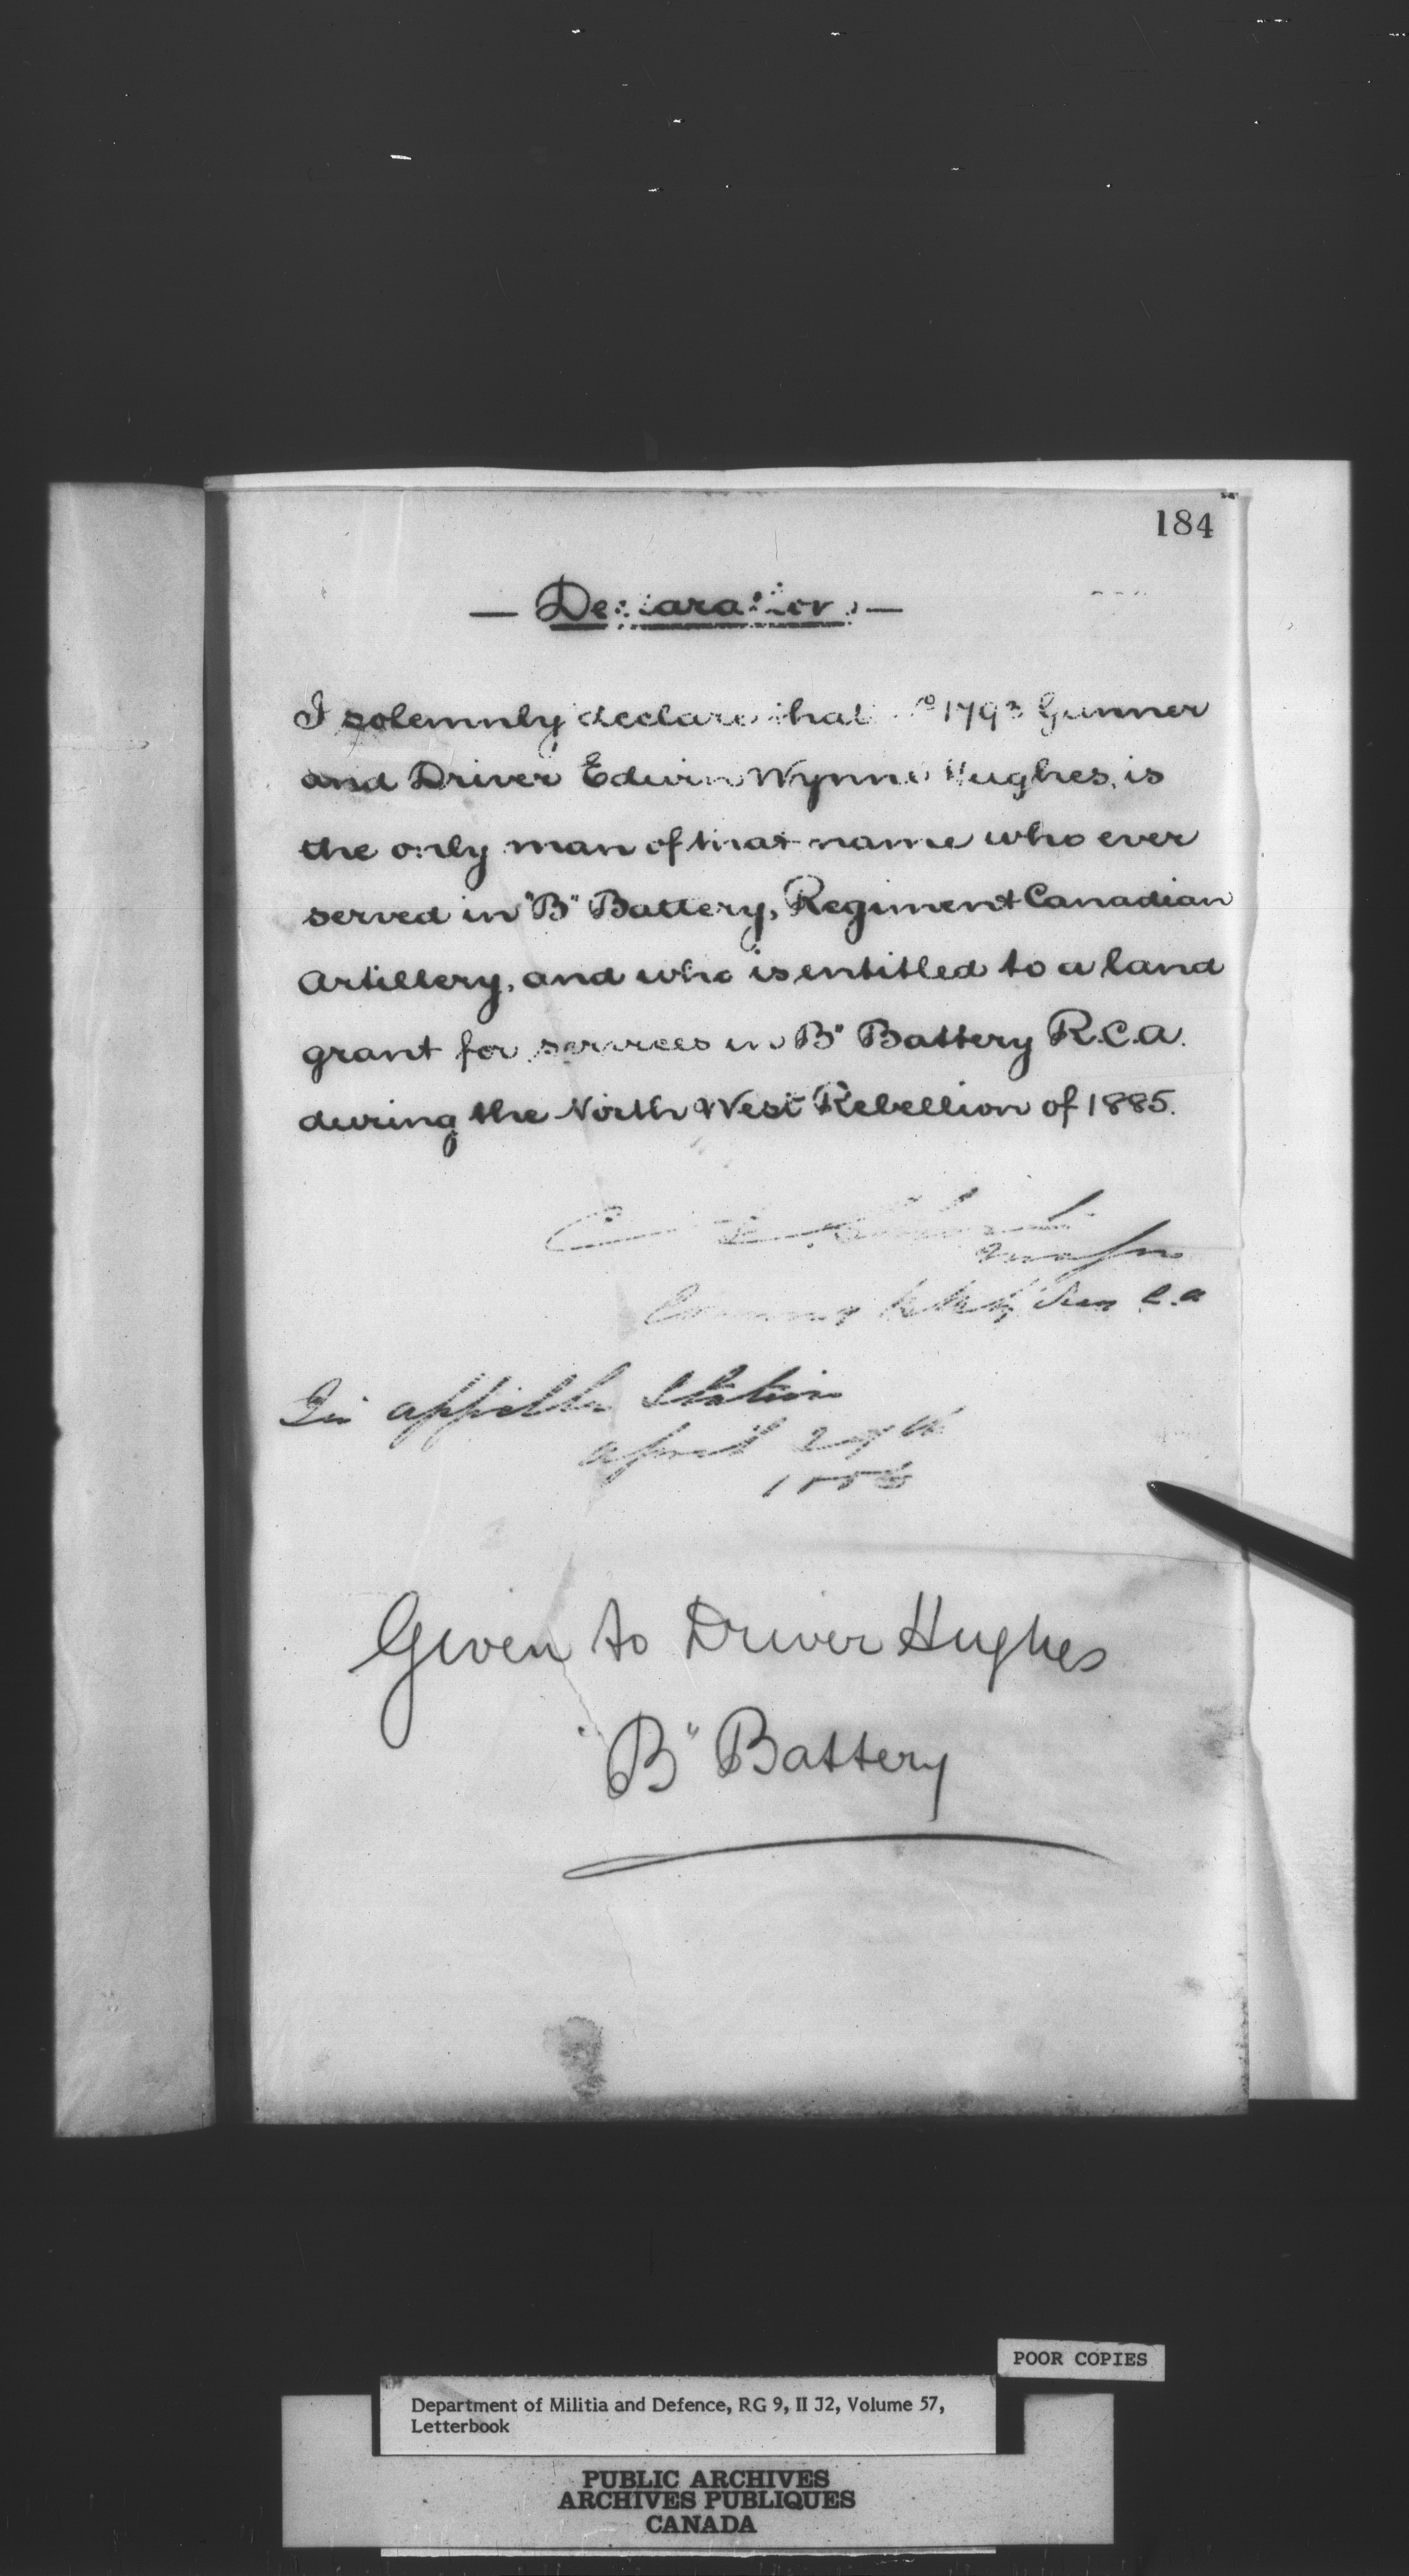 184
— Declaration —
I solemnly declare that No 1793 Gunner
and Driver Edwin Wynne Hughes, is
the only man of that name who ever
served in "B" Battery, Regiment Canadian
Artillery, and who is entitled to a land
grant for services in "B" Battery R.C.A.
during the North West Rebellion of 1885.
Major
C.A
Qu'appelle Station
April 27th
1886
Given to Driver Hughes
"B" Battery
POOR COPIES
Department of Militia and Defence, RG 9, II J2, Volume 57,
Letterbook
PUBLIC ARCHIVES
ARCHIVES PUBLIQUES
CANADA